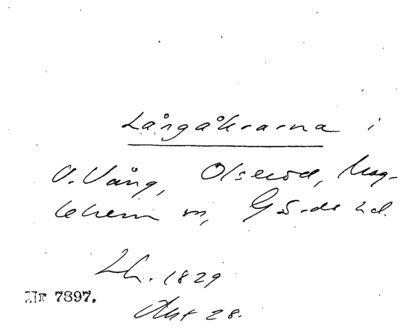 Långåkrarna i
O. Vång, Olseröd, Mag-
lehem sn, Gärds hd.
Lh. 1829
Akt 28.
Nr 7897.